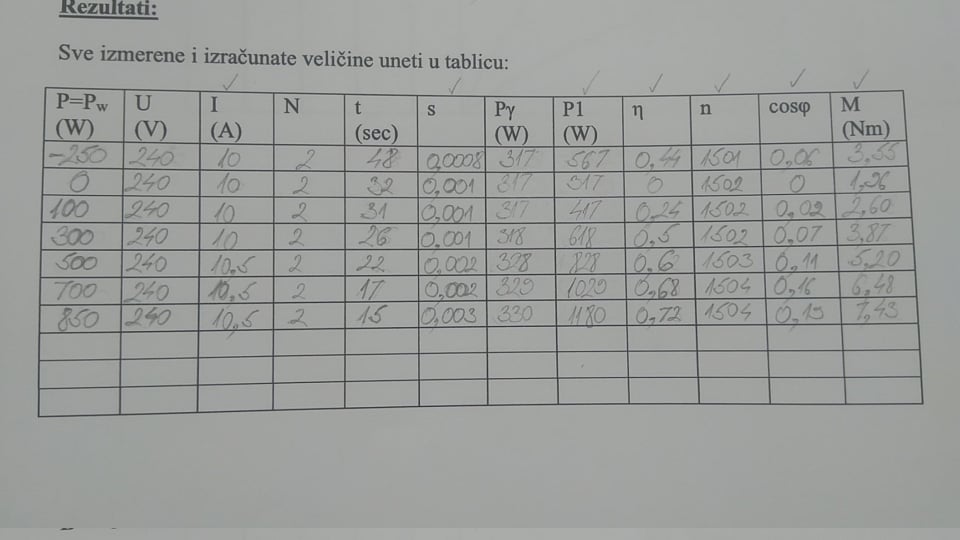 Rezultati:
Sve izmerene i izračunate veličine uneti u tablicu:
P=Pw (W) U (V) I (A) N t (sec) s Pγ (W) P1 (W) η n cosφ M (Nm)
-250 240 10 2 48 0,0008 317 567 0,44 1501 0,06 3,55
0 240 10 2 32 0,001 317 317 0 1502 0 1,96
100 240 10 2 31 0,001 317 417 0,24 1502 0,02 2,60
300 240 10 2 26 0,001 318 618 0,5 1502 0,07 3,87
500 240 10,5 2 22 0,002 328 828 0,6 1503 0,11 5,20
700 240 10,5 2 17 0,002 329 1029 0,68 1504 0,16 6,48
850 240 10,5 2 15 0,003 330 1180 0,72 1504 0,19 7,43